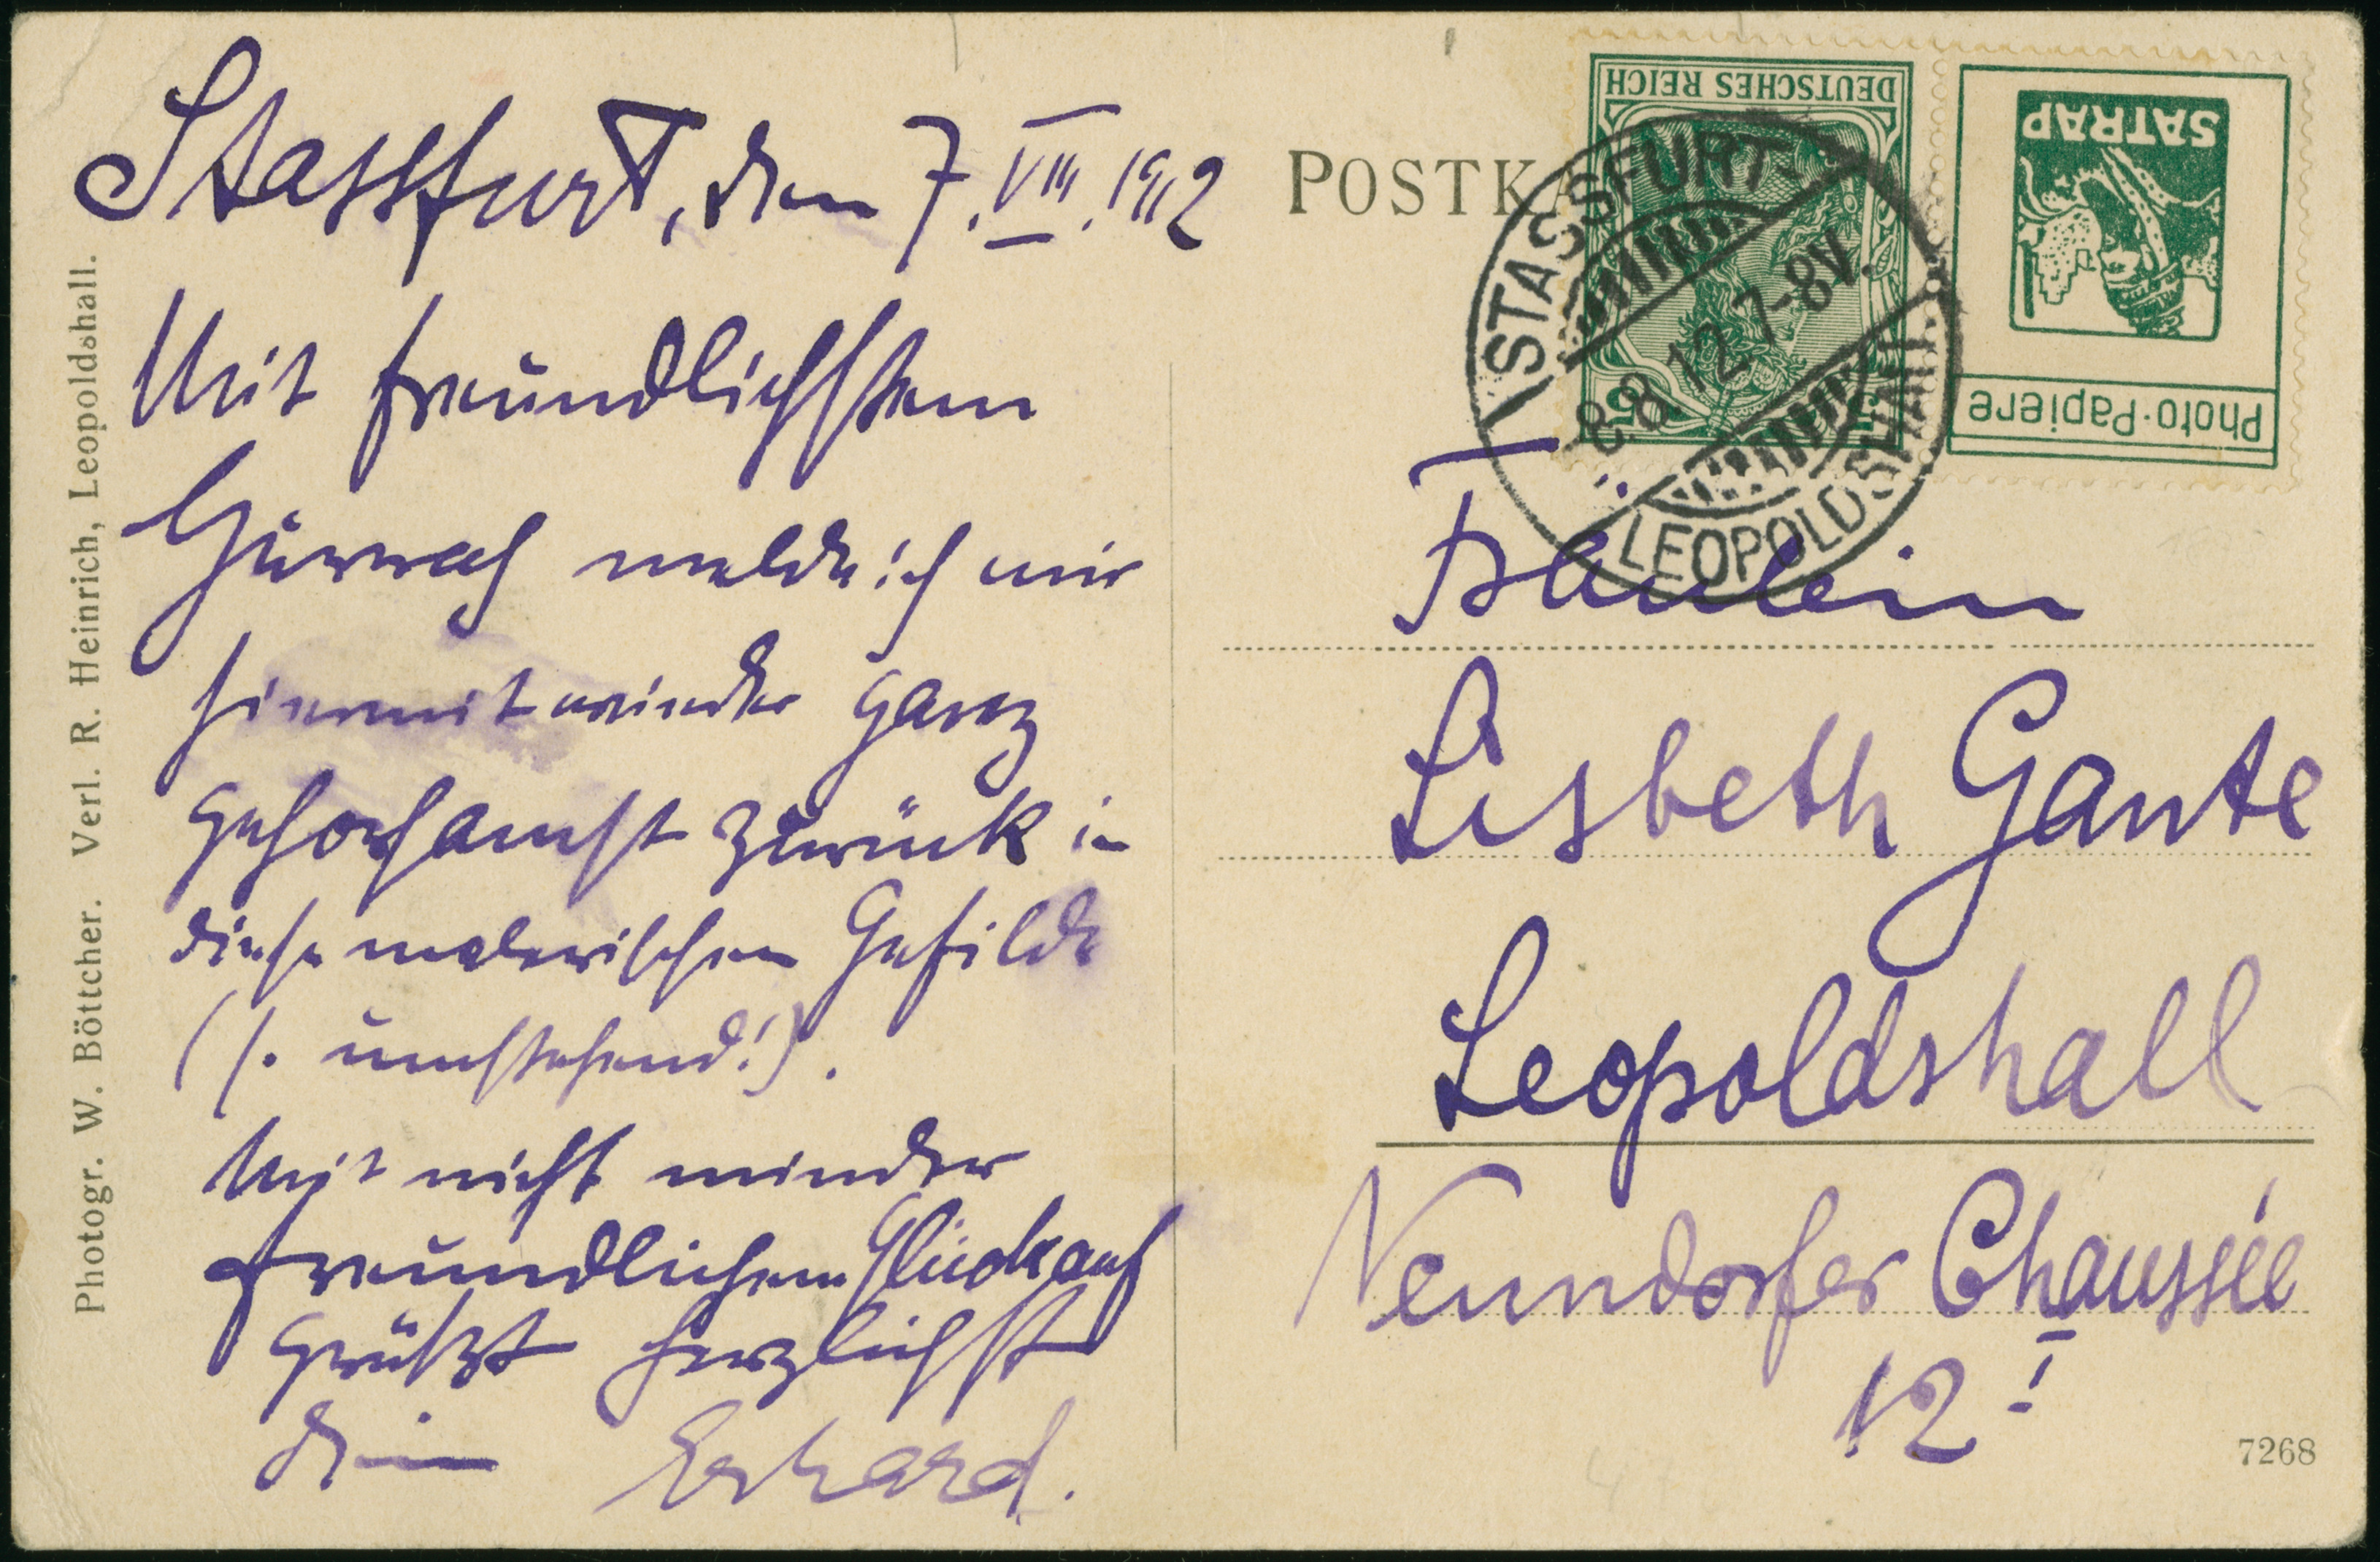 Stassfurt, den 7. VIII. 1912
Mit freundlichstem
Hurrah melde ich mir
hiermit wieder ganz
gehorsamst zurück in
diese malerischen Gefilde
(s. umstehend!).
Mit nicht minder
freundlichem Glückauf
grüßt herzlichst
Dein Erhard.
Photogr. W. Böttcher. Verl. R. Heinrich, Leopoldshall.
POSTKA
DEUTSCHES REICH
5 5
SATRAP
Photo-Papiere
STASSFURT-
8.8.12.7-8V.
LEOPOLDSHALL
Fräulein
Lisbeth Gante
Leopoldshall
Neundorfer Chaussée
12 I
7268